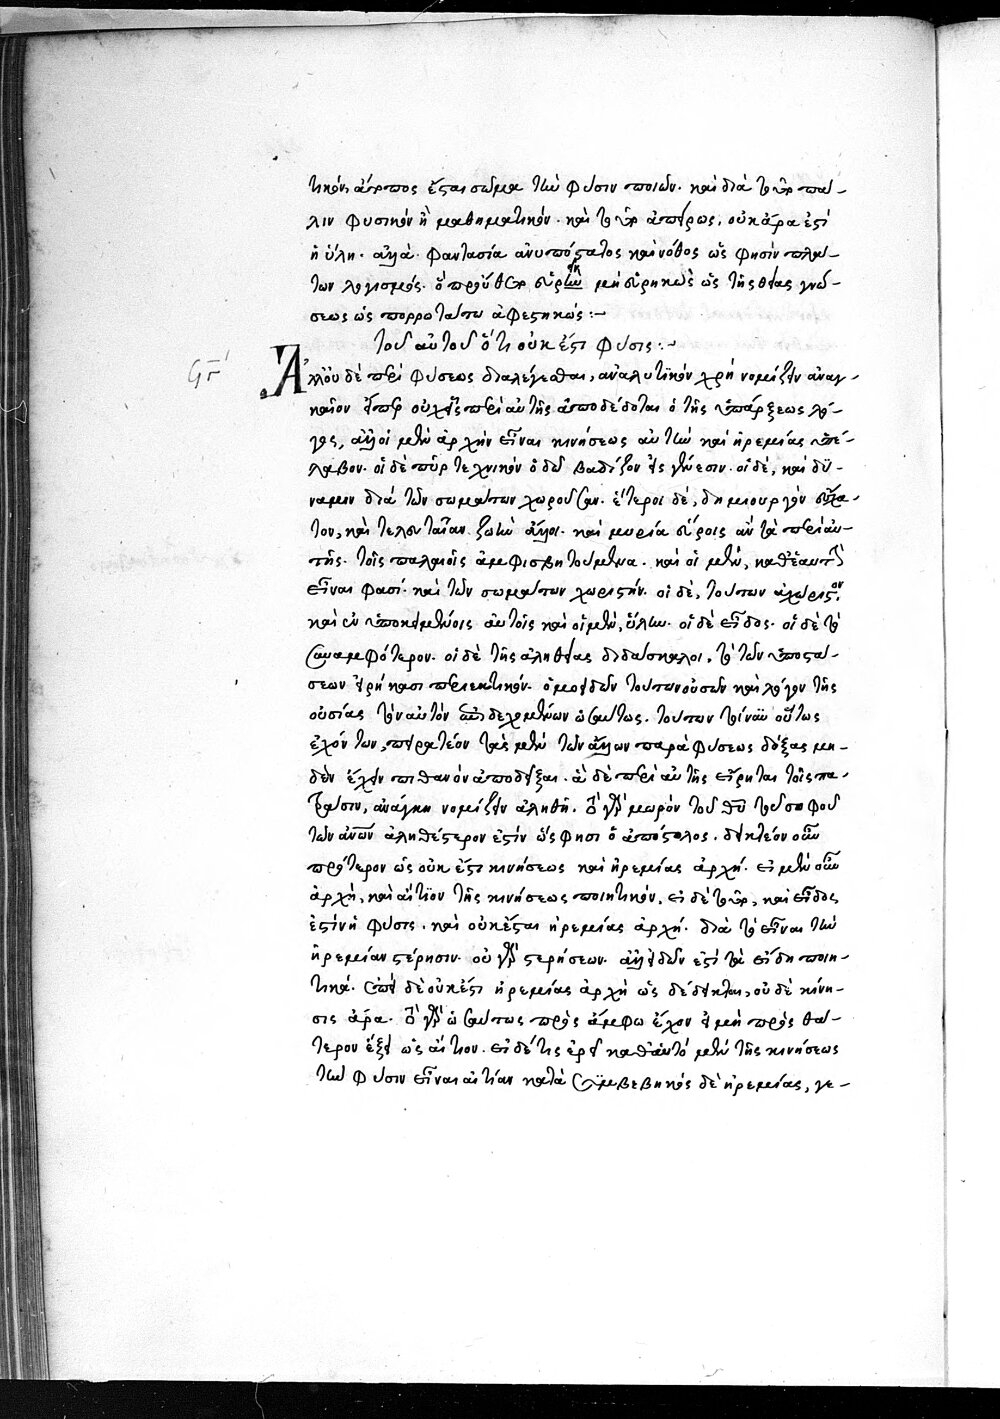 τικόν, ἄτοπος ἔσται σῶμα τὴν φύσιν ποιῶν. καὶ διὰ τοῦτο πά-
λιν φυσικὸν ἢ μαθηματικόν. καὶ τοῦτο ἀπείρως, οὐκ ἄρα ἐστὶ
ἡ ὕλη. ἀλλὰ φαντασία ἀνυπόστατος καὶ νόθος ὥς φησὶν πλά-
των λογισμός. ὁ προὔθετο μὴ εἰρηκὼς ὡς τῆς θείας γνώ-
σεως ὡς πορρωτάτω ἀφεστηκώς :~
τοῦ αὐτοῦ ὅτι οὐκ ἔστι φύσις :~
Ἄλλου δὲ περὶ φύσεως διαλέγεσθαι, ἀναλυτικὸν χρὴ νομίζειν ἀναγ-
καῖον εἴπερ οὐχ εἷς περὶ αὐτῆς ἀποδέδοται ὁ τῆς ὑπάρξεως λό-
γος, ἀλλ' οἱ μὲν ἀρχὴν εἶναι κινήσεως αὐτὴν καὶ ἠρεμίας ὑπέ-
λαβον. οἱ δὲ πῦρ τεχνικὸν ὁδῷ βαδίζον εἰς γένεσιν. οἱ δὲ, καὶ δύ-
ναμιν διὰ τῶν σωμάτων χωροῦσαν. ἕτεροι δὲ, δημιουργὸν
τον, καὶ τελευταῖαν ζωὴν ἄλλοι. καὶ μυρία εὕροις ἂν τὰ περὶ αὐ-
τῆς τοῖς παλαιοῖς ἀμφισβητούμενα. καὶ οἱ μὲν, καθ' ἑαυτὴν
εἶναι φασὶ καὶ τῶν σωμάτων χωριστήν. οἱ δὲ, τούτων ἀχώριστον
καὶ ἐν ὑποκειμένοις αὐτοῖς καὶ οἱ μὲν, ὕλην. οἱ δὲ εἶδος. οἱ δὲ τὸ
συναμφότερον. οἱ δὲ τῆς ἀληθείας διδάσκαλοι, τὸ τῶν ὑποστά-
σεων εἰρήκασι περιεκτικόν. ὁμοειδῶν τούτων οὐσῶν καὶ λόγον τῆς
οὐσίας τὸν αὐτὸν ἐπιδεχομένων ὡσαύτως. τούτων τοίνυν οὕτως
ἐχόντων, πειρατέον τὰς μὲν τῶν ἄλλων παρὰ φύσεως δόξας μη-
δὲν ἔχειν πιθανὸν ἀποδεῖξαι. ἃ δὲ περὶ αὐτῆς εἴρηται τοῖς πα-
τράσιν, ἀνάγκη νομίζειν ἀληθῆ. τὸ γὰρ μωρὸν τοῦ θυ τοῦ σοφοῦ
τῶν ἀνῶν ἀληθέστερον ἐστίν ὥς φησι ὁ ἀπόστολος. δεικτέον οὖν
πρότερον ὡς οὐκ ἔστι κινήσεως καὶ ἠρεμίας ἀρχή. εἰ μὲν οὖν
ἀρχὴ, καὶ αἴτιον τῆς κινήσεως ποιητικόν, εἰ δὲ τοῦτο, καὶ εἶδος
ἐστὶν ἡ φύσις. καὶ οὐκ ἔσται ἠρεμίας ἀρχή. διὰ τὸ εἶναι τὴν
ἠρεμίαν στέρησιν. οὐ γὰρ στερήσεων. ἀλλ' εἰδῶν ἐστὶ τὰ εἴδη ποιη-
τικά. ἐπεὶ δὲ οὐκ ἔστι ἠρεμίας ἀρχὴ ὡς δέδεικται, οὐδὲ κινή-
σις ἄρα. τὸ γὰρ ὡσαύτως πρὸς ἄμφω ἔχον εἰ μὴ πρὸς θά-
τερον ἕξει ὡς αἴτιον. εἰ δέ τις ἐρεῖ καθ' αὑτὸ μὲν τῆς κινήσεως
τὴν φύσιν εἶναι αἰτίαν κατὰ συμβεβηκὸς δὲ ἠρεμίας, γε-